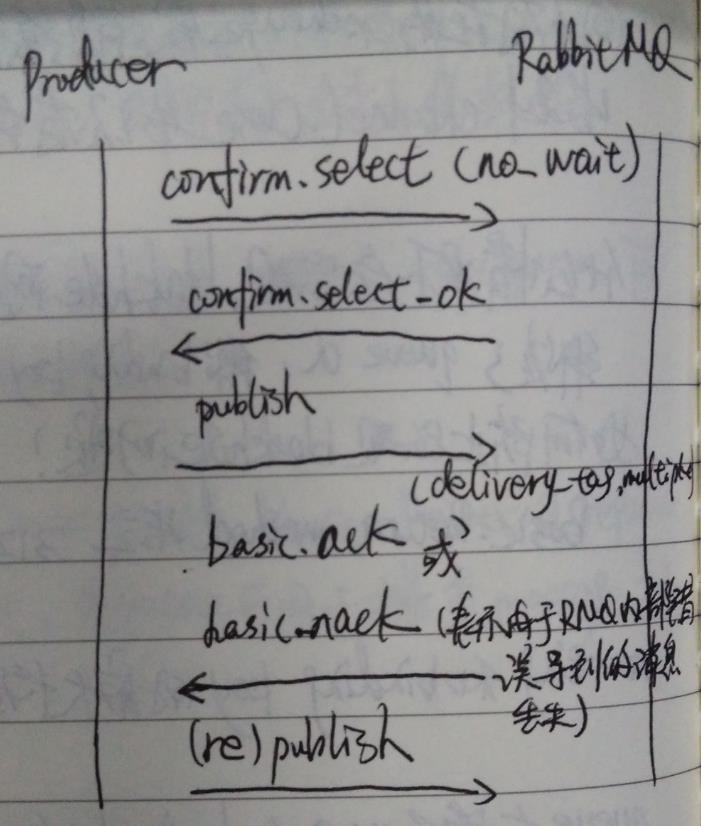 Producer RabbitMQ
confirm.select (no_wait)
confirm.select-ok
publish
(delivery-tag, multiple)
basic.ack 或
basic.nack (表示由于RMQ内部错
误导到的消息
丢失)
(re) publish